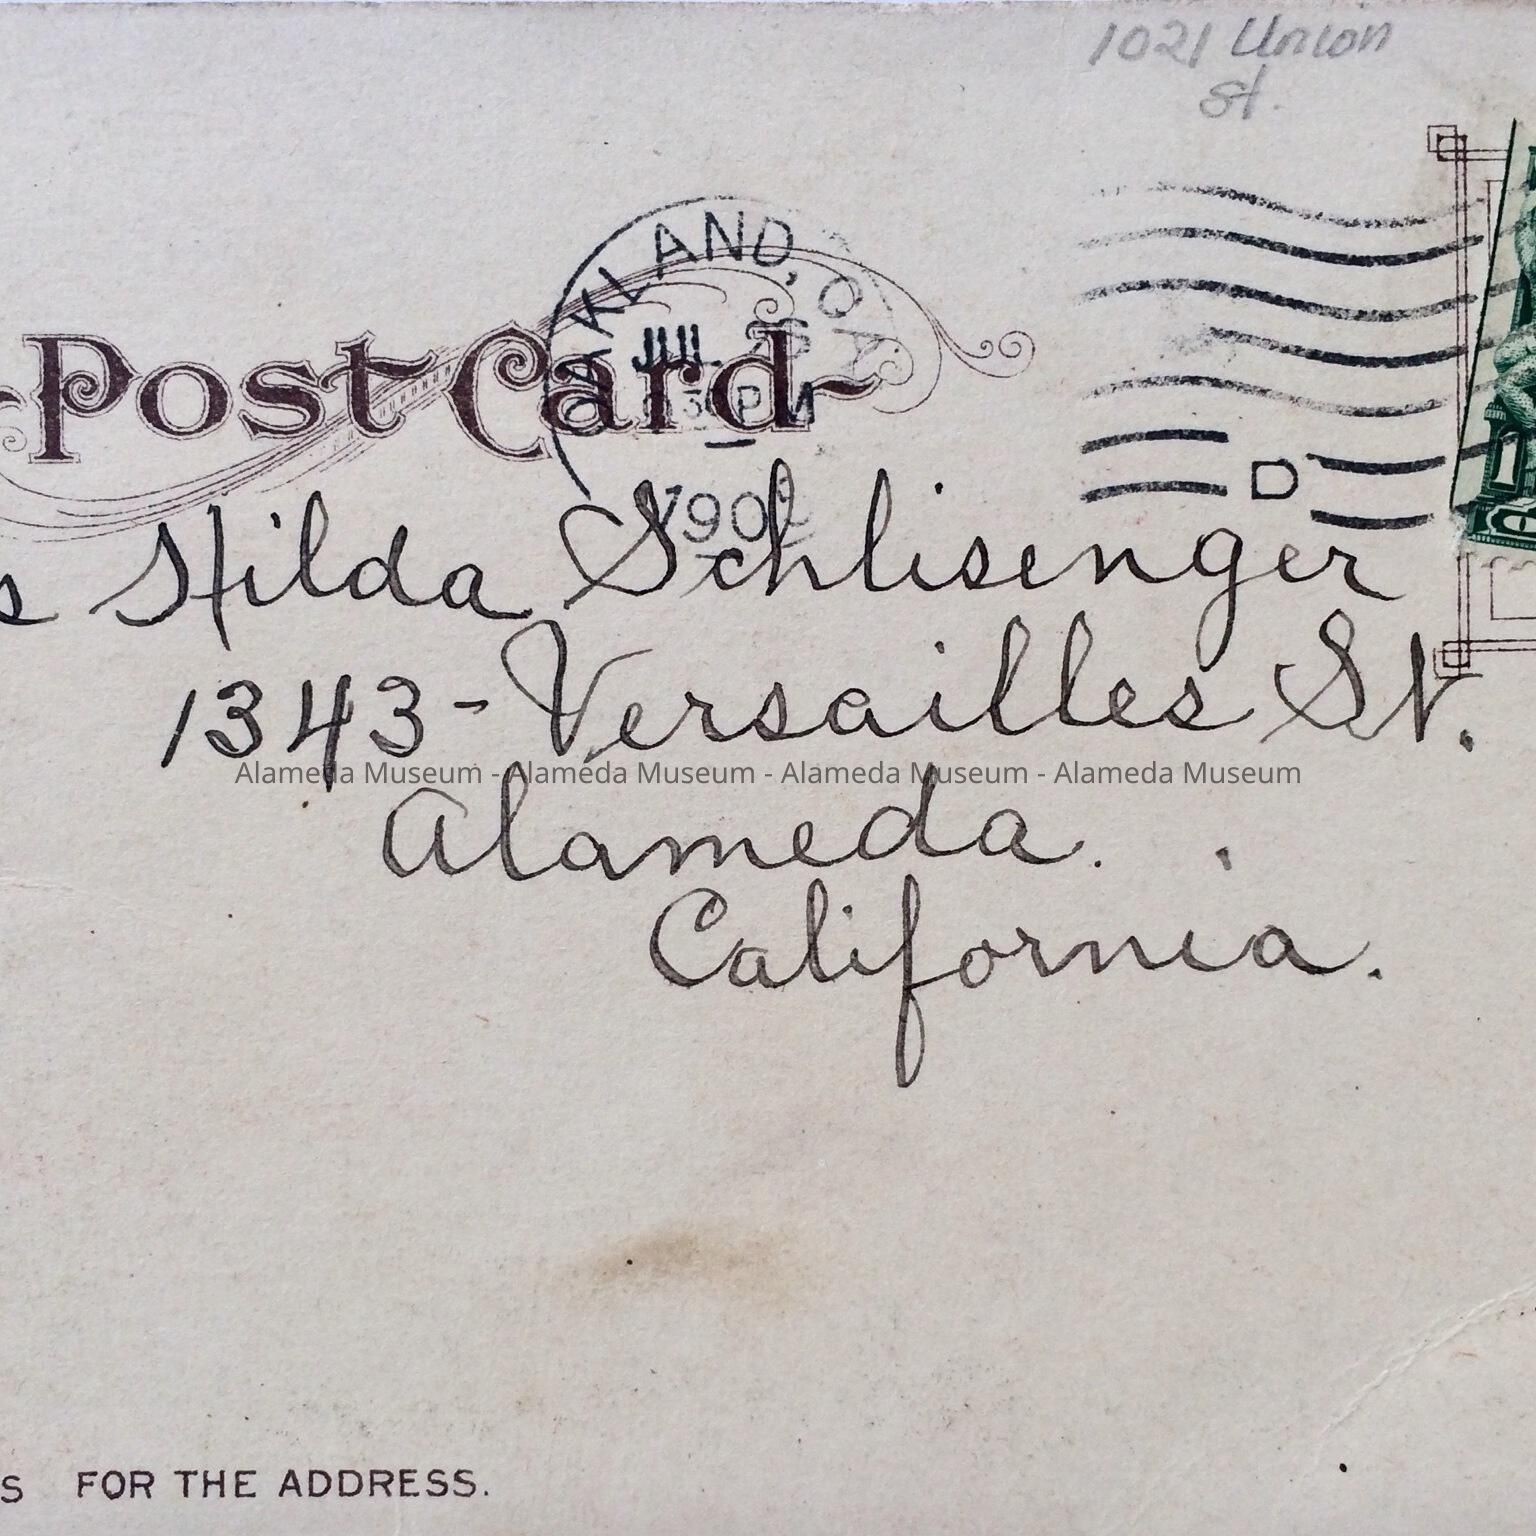 1021 Union
st.
OAKLAND, CAL
JUL
30 PM
Post Card
D
1
s Hilda Schlisenger
1343-Versailles St.
Alameda Museum - Alameda Museum - Alameda Museum - Alameda Museum
Alameda.
California.
S FOR THE ADDRESS.